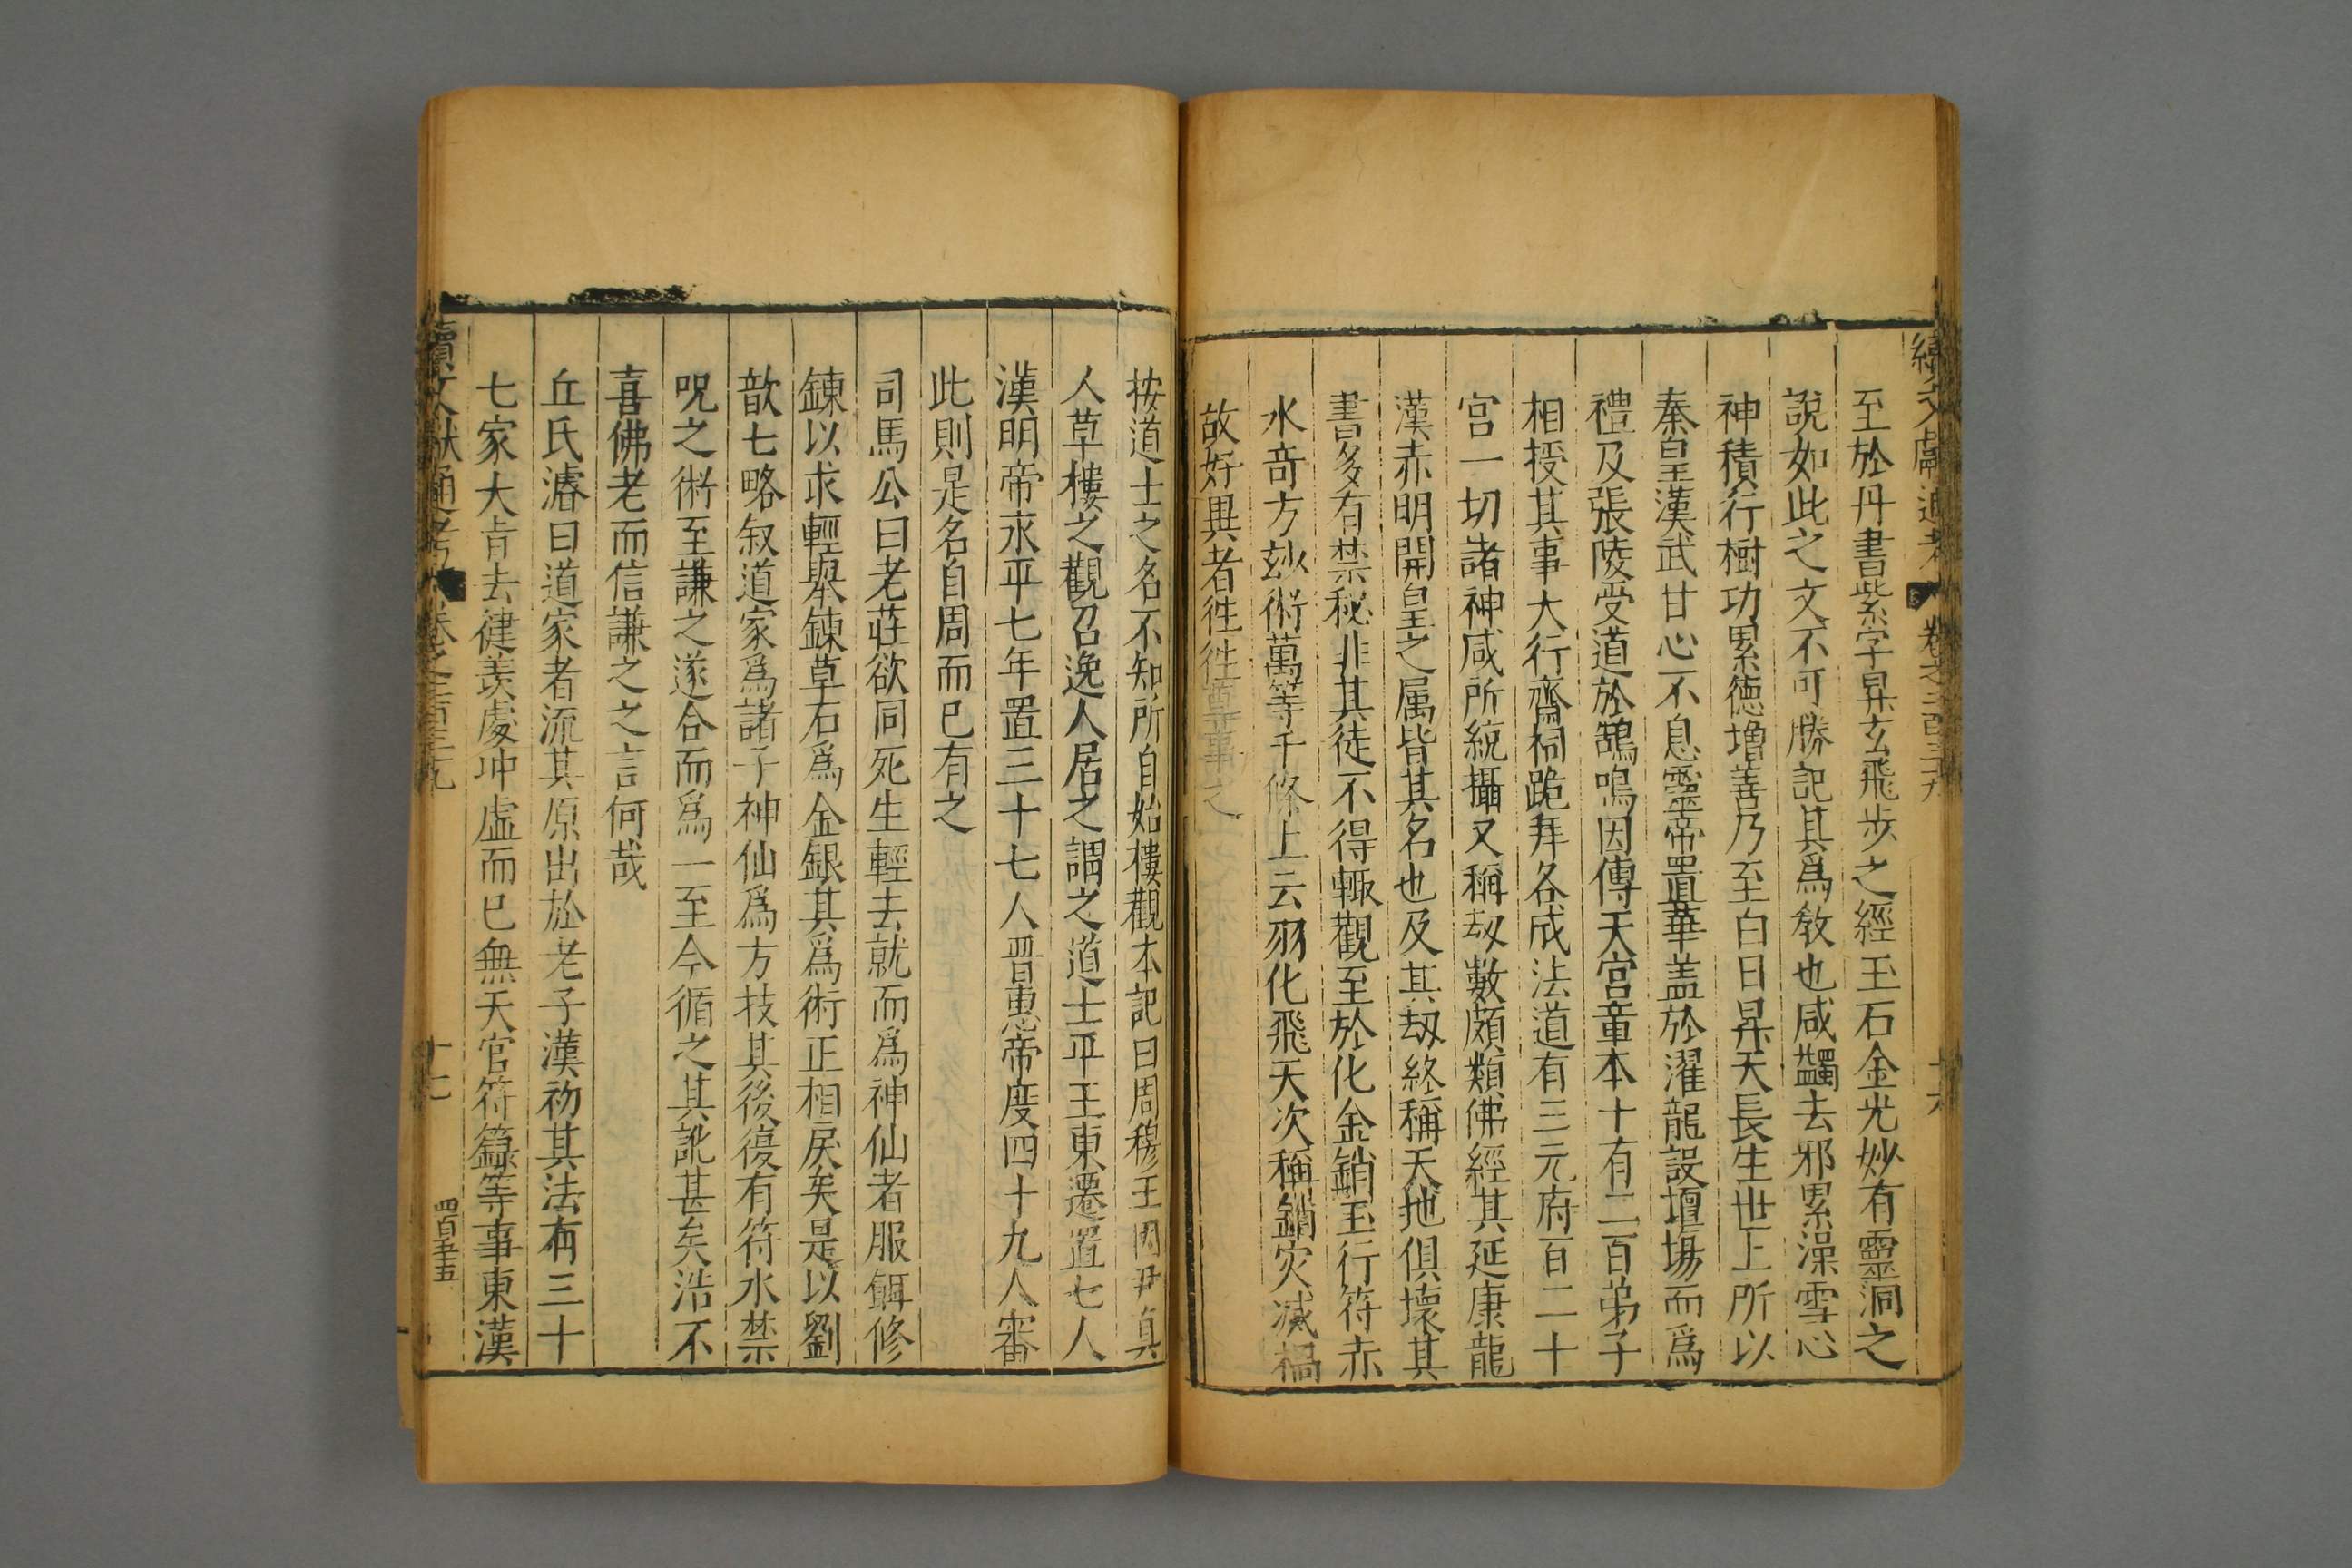 續文獻通考 卷之二百三十九 十六
至於丹書紫字昇玄飛步之經玉石金光妙有靈洞之
說如此之文不可勝記其爲敎也咸蠲去邪累澡雪心
神積行樹功累德增善乃至白日昇天長生世上所以
秦皇漢武甘心不息靈帝置華盖於濯龍設壇塲而爲
禮及張陵受道於鵠鳴因傳天宫章本十有二百弟子
相授其事大行齋祠跪拜各成法道有三元府百二十
宫一切諸神咸所統攝又稱刼數頗類佛經其延康龍
漢赤明開皇之属皆其名也及其刼終稱天地俱壞其
書多有禁秘非其徒不得輒觀至於化金銷玉行符赤
水奇方玅術萬等千條上云羽化飛天次稱銷灾滅禍
故好異者徃徃尊事之
按道士之名不知所自始樓觀本記曰周穆王因尹真
人草樓之觀召逸人居之謂之道士平王東遷置七人
漢明帝永平七年置三十七人晋惠帝度四十九人審
此則是名自周而已有之
司馬公曰老莊欲同死生輕去就而爲神仙者服餌修
鍊以求輕舉鍊草石爲金銀其爲術正相戾矣是以劉
歆七略叙道家爲諸子神仙爲方技其後復有符水禁
呪之術至謙之遂合而爲一至今循之其訛甚矣浩不
喜佛老而信謙之之言何哉
丘氏濬曰道家者流其原出於老子漢初其法有三十
七家大肯去健羡處冲虛而已無天官符籙等事東漢
續文獻通考 卷之二百三十九 十七 四百五十五